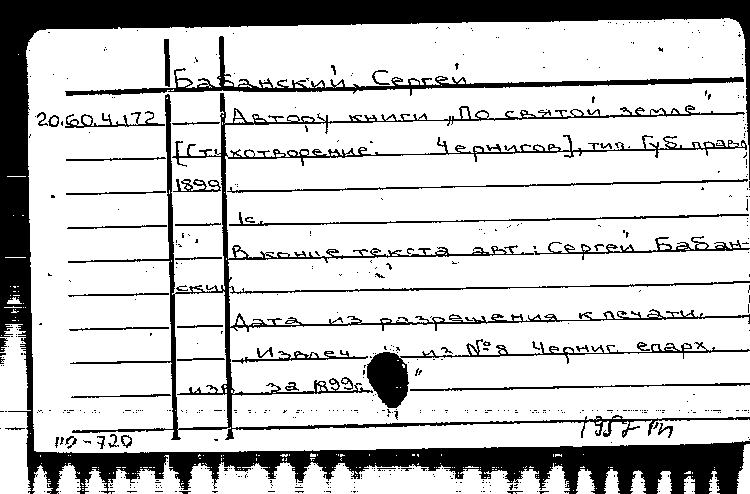 Бабанский, Сергей
20.60.4.172 Автору книги „По святой земле".
[Стихотворение. Чернигов], тип. Губ. правл.
1899.
1с.
В конце текста авт.: Сергей Бабан-
ский.
Дата из разрешения к печати.
„Извлеч. из №8 Черниг. епарх.
изв. за 1899г."
по-720